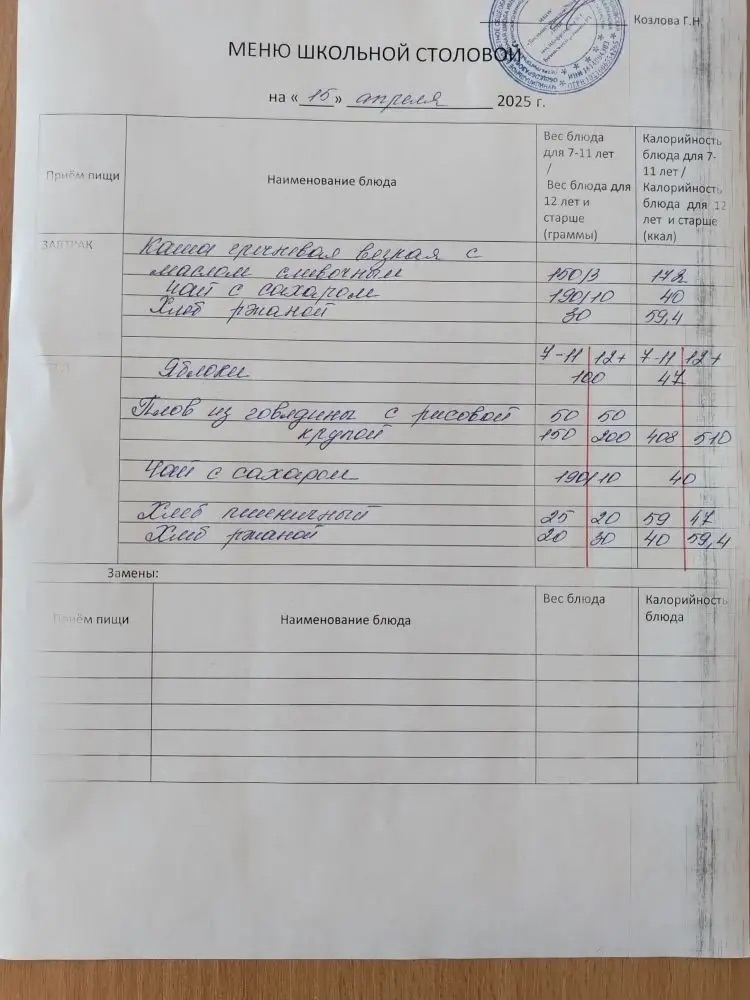 Козлова Г.Н.
МЕНЮ ШКОЛЬНОЙ СТОЛОВОЙ
на « 15 » апреля 2025 г.
Приём пищи
Наименование блюда
Вес блюда для 7-11 лет / Вес блюда для 12 лет и старше (граммы)
Калорийность блюда для 7-11 лет / Калорийность блюда для 12 лет и старше (ккал)
ЗАВТРАК
Каша гречневая вязкая с
маслом сливочным 150/3 172
Чай с сахаром 190/10 40
Хлеб ржаной 30 59,4
7-11 12+ 7-11 12+
Яблоки 100 47
Плов из говядины с рисовой 50 50
крупой 150 200 408 510
Чай с сахаром 190/10 40
Хлеб пшеничный 25 20 59 47
Хлеб ржаной 20 30 40 59,4
Замены:
Приём пищи Наименование блюда Вес блюда Калорийность блюда